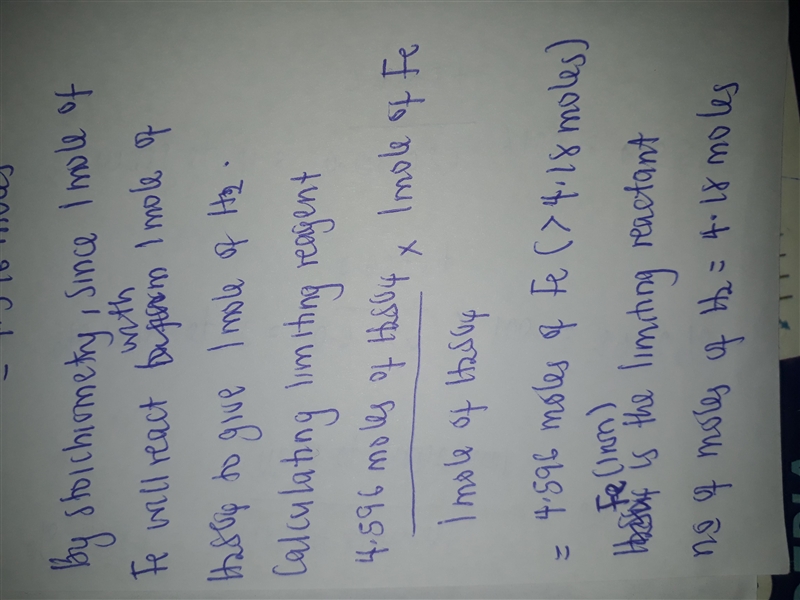 By stoichiometry, since 1mole of
Fe will react with 1mole of
H2SO4 to give 1mole of H2.
Calculating limiting reagent
4.596 moles of H2SO4 × 1mole of Fe
1mole of H2SO4
= 4.596 moles of Fe (> 4.18 moles)
Fe (iron)
H2SO4 is the limiting reactant
no of moles of H2 = 4.18 moles